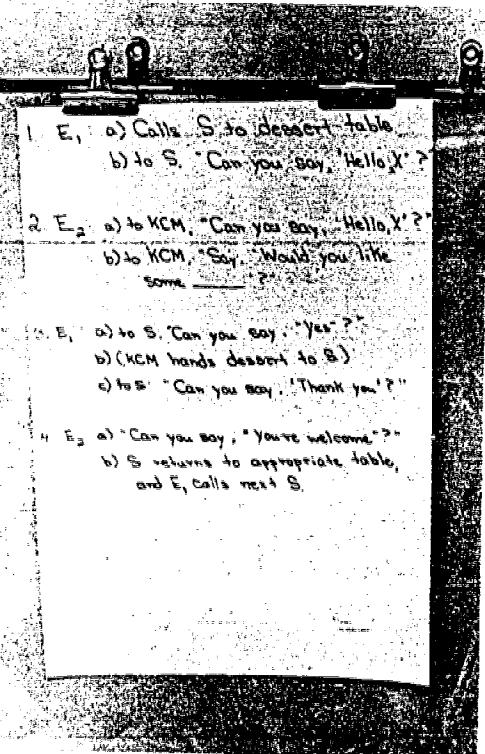 1. E₁ a) Calls S to dessert table
b) to S, "Can you say, 'Hello, X'?"
2. E₂ a) to KCM, "Can you say, 'Hello, X'?"
b) to KCM, "Say, 'Would you like
some ____'?"
3. E₁ a) to S, "Can you say, "Yes"?"
b) (KCM hands dessert to S)
c) to S "Can you say, 'Thank you'?"
4 E₂ a) "Can you say, "You're welcome"?"
b) S returns to appropriate table,
and E₁ calls next S.